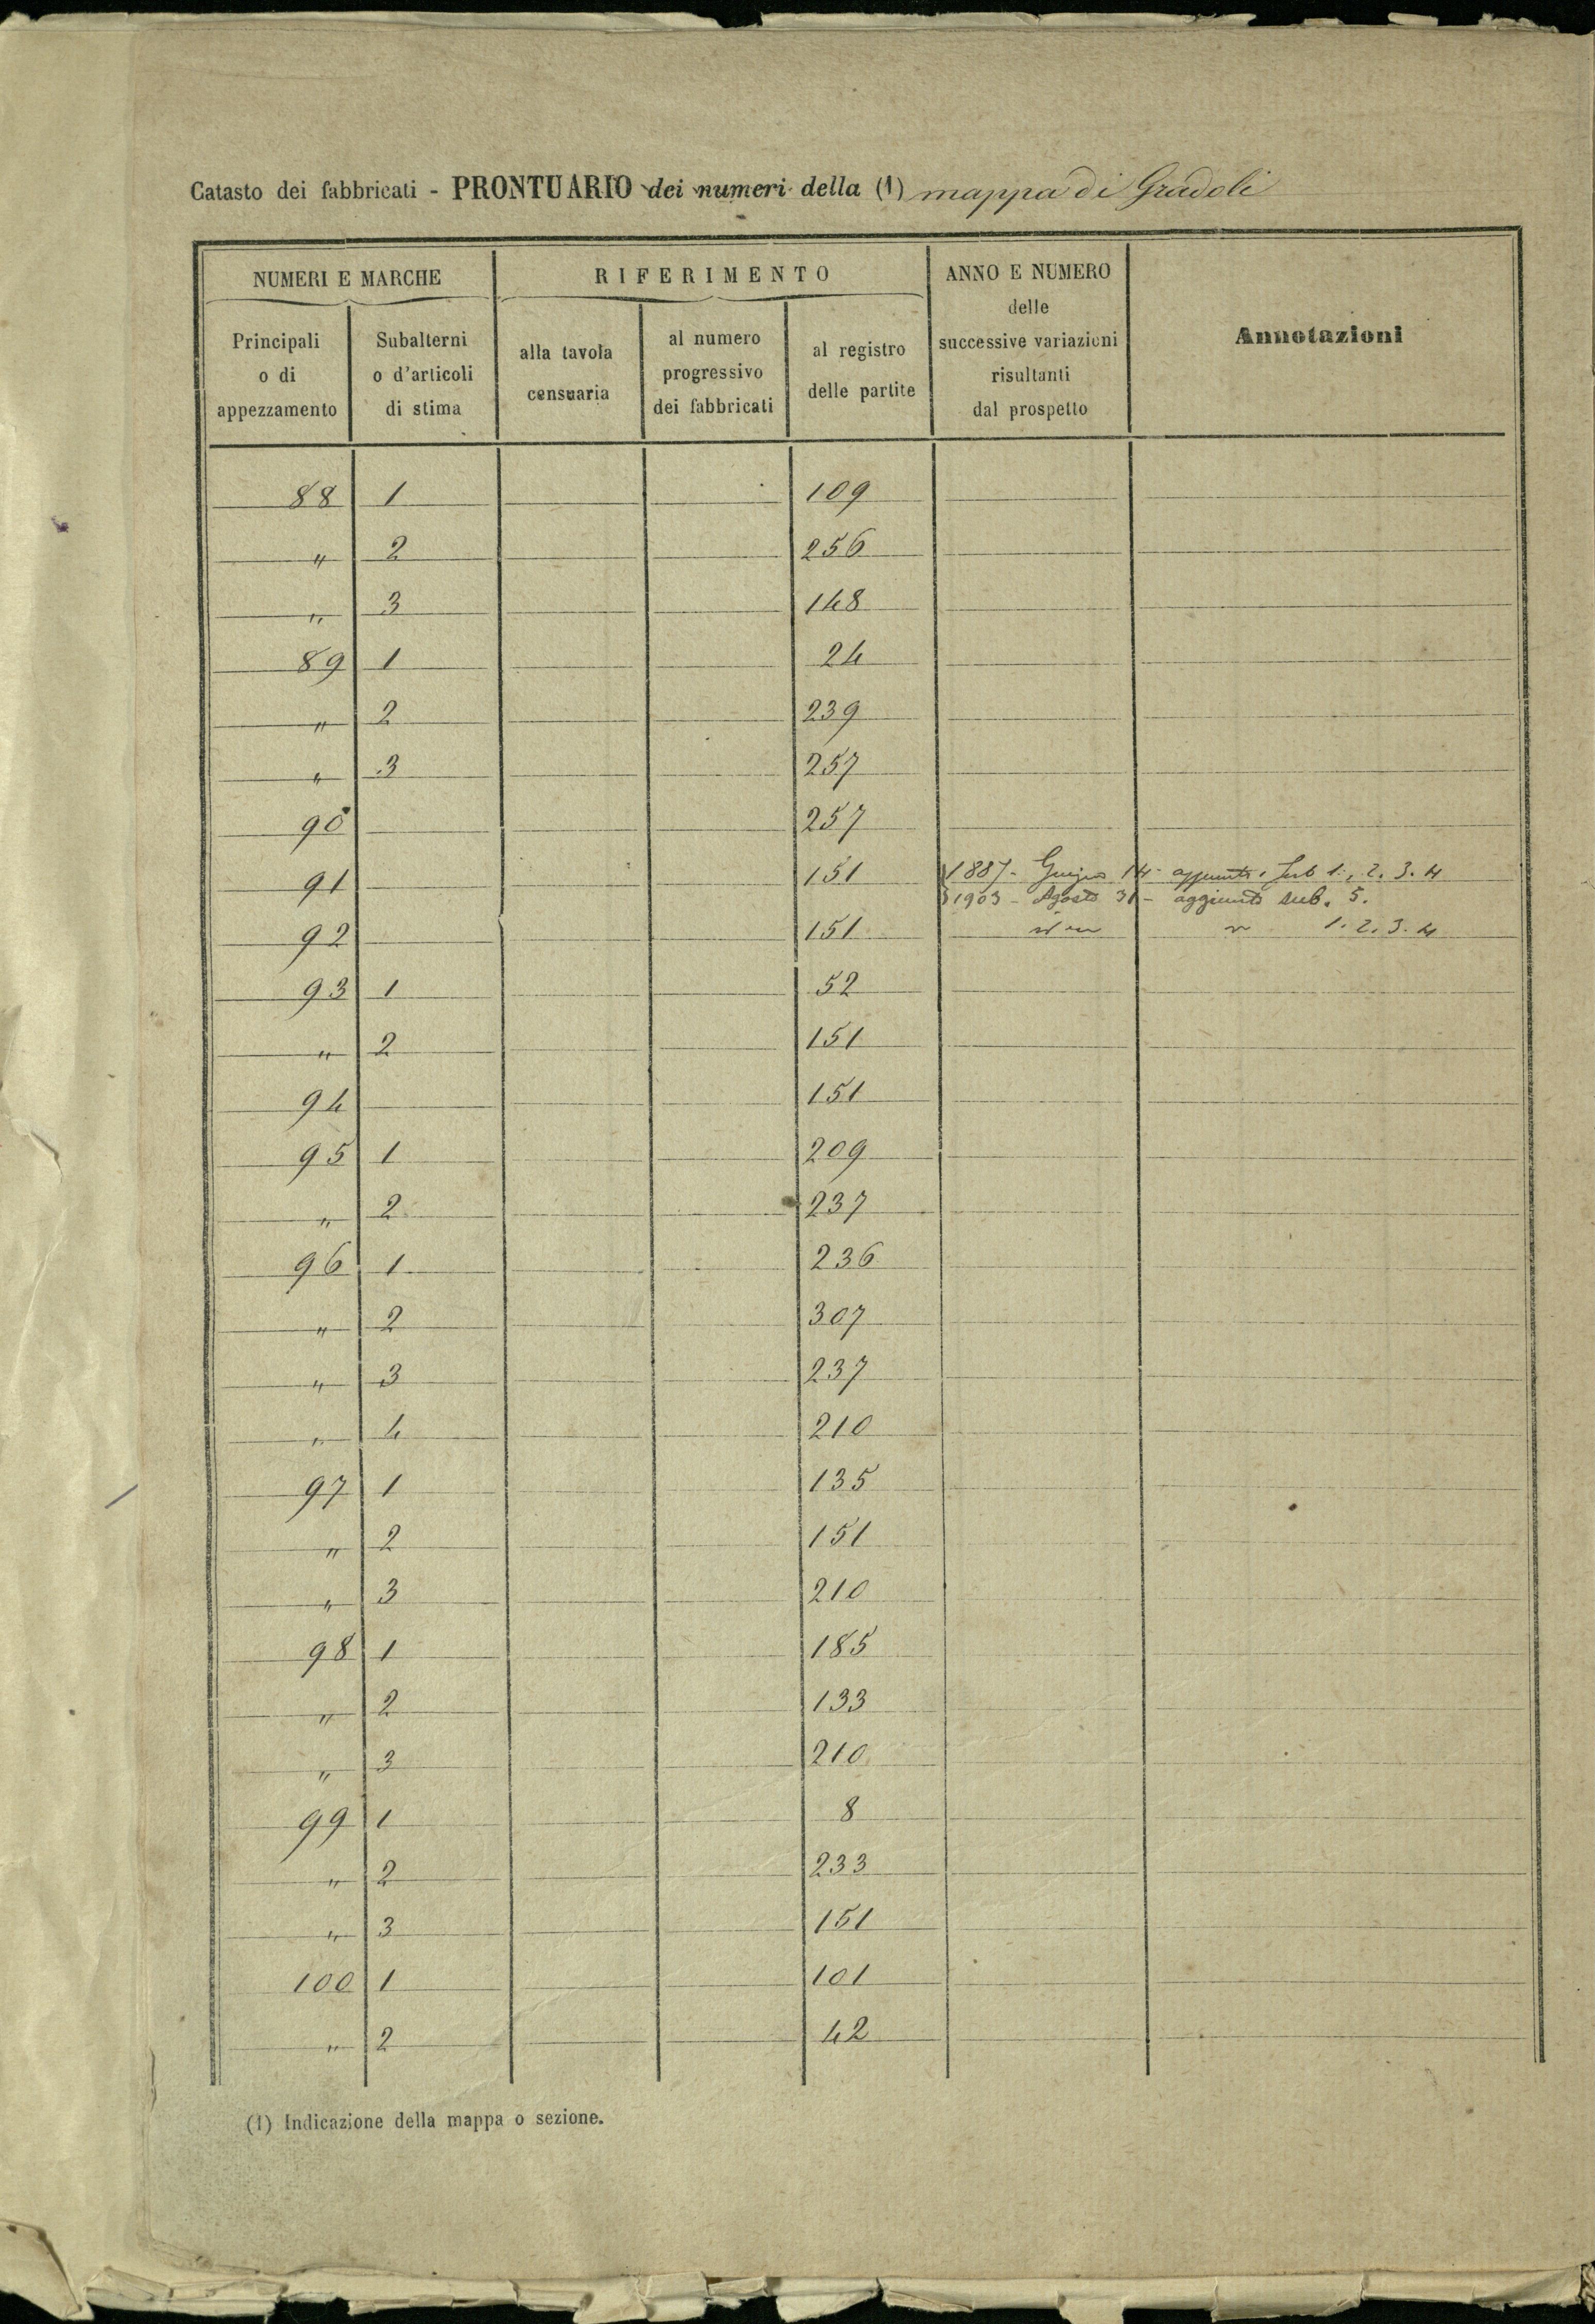 Catasto dei fabbricati - PRONTUARIO dei numeri della (1) mappa di Gradoli
NUMERI E MARCHE
RIFERIMENTO
ANNO E NUMERO
delle
successive variazioni
risultanti
dal prospetto
Annotazioni
Principali
o di
appezzamento
Subalterni
o d'articoli
di stima
alla tavola
censuaria
al numero
progressivo
dei fabbricati
al registro
delle partite
88 1 109
" 2 256
" 3 148
89 1 24
" 2 239
" 3 257
90 257
91 151 1887 - Giugno 14 - Sub 1., 2. 3. 4
1903 - Agosto 31 - aggiunto sub. 5.
92 151 1. 2. 3. 4
93 1 52
" 2 151
94 151
95 1 209
" 2 237
96 1 236
" 2 307
" 3 237
" 4 210
97 1 135
" 2 151
" 3 210
98 1 185
" 2 133
" 3 210
99 1 8
" 2 233
" 3 151
100 1 101
" 2 42
(1) Indicazione della mappa o sezione.